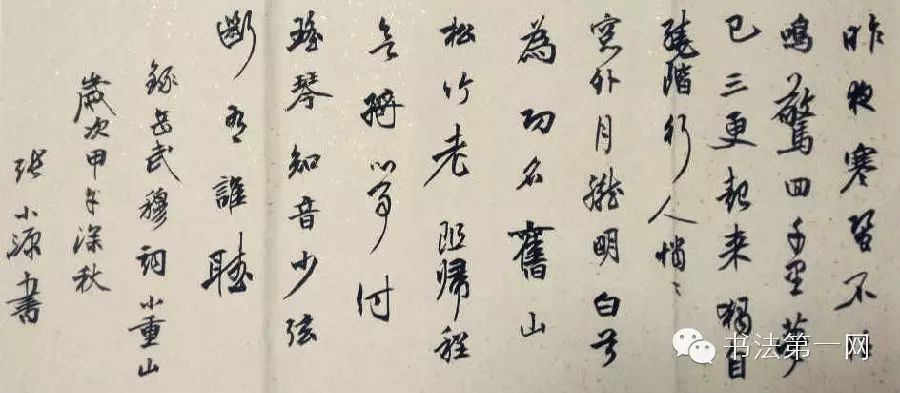 昨夜寒蛩不住
鳴驚回千里夢
已三更起来獨自
繞階行人悄々
窓外月朧明白首
為功名舊山
松竹老阻歸程
欲將心事付
瑤琴知音少弦
断有誰聽
録岳武穆詞小重山
歲次甲午深秋
张小源書
书法第一网